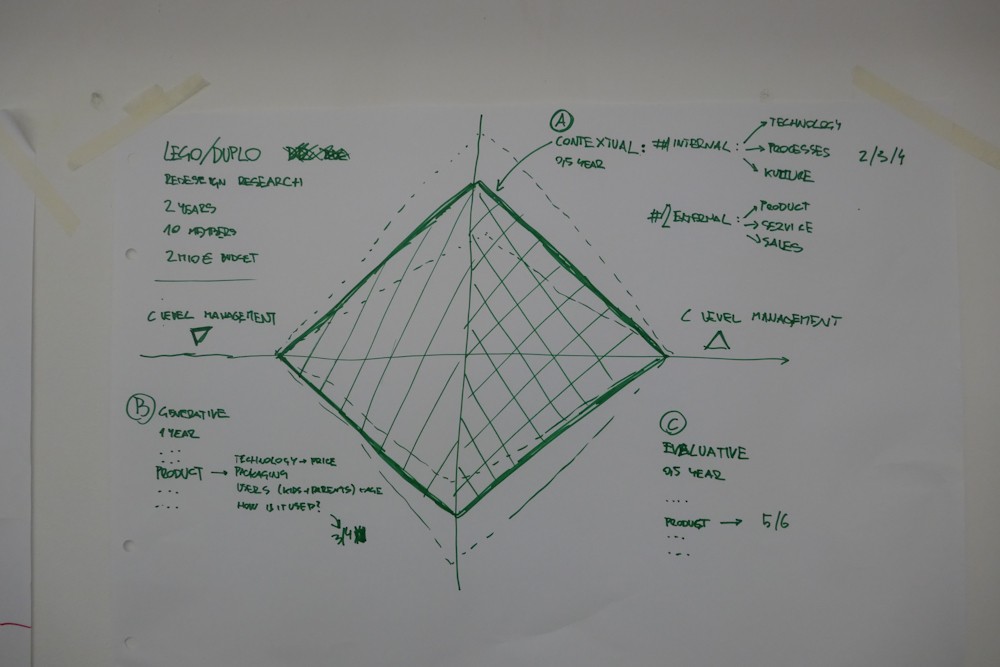 LEGO/DUPLO
REDESIGN RESEARCH
2 YEARS
10 MEMBERS
2 MIO € BUDGET
C LEVEL MANAGEMENT
A
CONTEXTUAL:
0,5 YEAR
#1 INTERNAL:
→ TECHNOLOGY
→ PROCESSES
→ KULTURE
2/3/4
#2 EXTERNAL:
→ PRODUCT
→ SERVICE
→ SALES
C LEVEL MANAGEMENT
B GENERATIVE
1 YEAR
...
PRODUCT →
TECHNOLOGY → PRICE
PACKAGING
USERS (KIDS + PARENTS) + AGE
HOW IS IT USED?
3/4
...
C
EVALUATIVE
0,5 YEAR
....
PRODUCT → 5/6
...
...